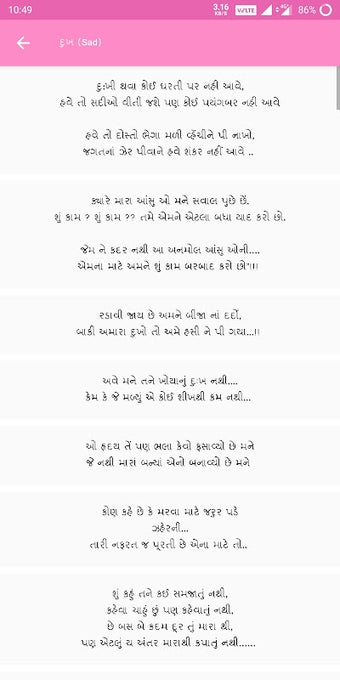 10:49
3.16 KB/S VoLTE 4G 86%
દુઃખ (Sad)
દુઃખી થવા કોઈ ધરતી પર નહી આવે,
હવે તો સદીઓ વીતી જશે પણ કોઈ પયંગબર નહી આવે
હવે તો દોસ્તો ભેગા મળી વ્હેંચીને પી નાખો,
જગતનાં ઝેર પીવાને હવે શંકર નહીં આવે ..
ક્યારે મારા આંસુ ઓ મને સવાલ પુછે છેં.
શું કામ ? શું કામ ?? તમે એમને એટલા બધા યાદ કરો છો.
જેમ ને કદર નથી આ અનમોલ આંસુ ઓની....
એમના માટે અમને શું કામ બરબાદ કરો છો"!!!
રડાવી જાય છે અમને બીજા નાં દર્દો,
બાકી અમારા દુખો તો અમે હસી ને પી ગયા...!!
અવે મને તને ખોયાનું દુઃખ નથી....
કેમ કે જે મળ્યું એ કોઈ શીખથી કમ નથી...
ઓ હ્રદય તેં પણ ભલા કેવો ફસાવ્યો છે મને
જે નથી મારાં બન્યાં એનો બનાવ્યો છે મને
કોણ કહે છે કે મરવા માટે જરૂર પડે
ઝહેરની...
તારી નફરત જ પૂરતી છે એના માટે તો..
શું કહું તને કઈ સમજાતું નથી,
કહેવા ચાહું છું પણ કહેવાતું નથી,
છે બસ બે કદમ દૂર તું મારા થી,
પણ એટલું ય અંતર મારાથી કપાતું નથી......